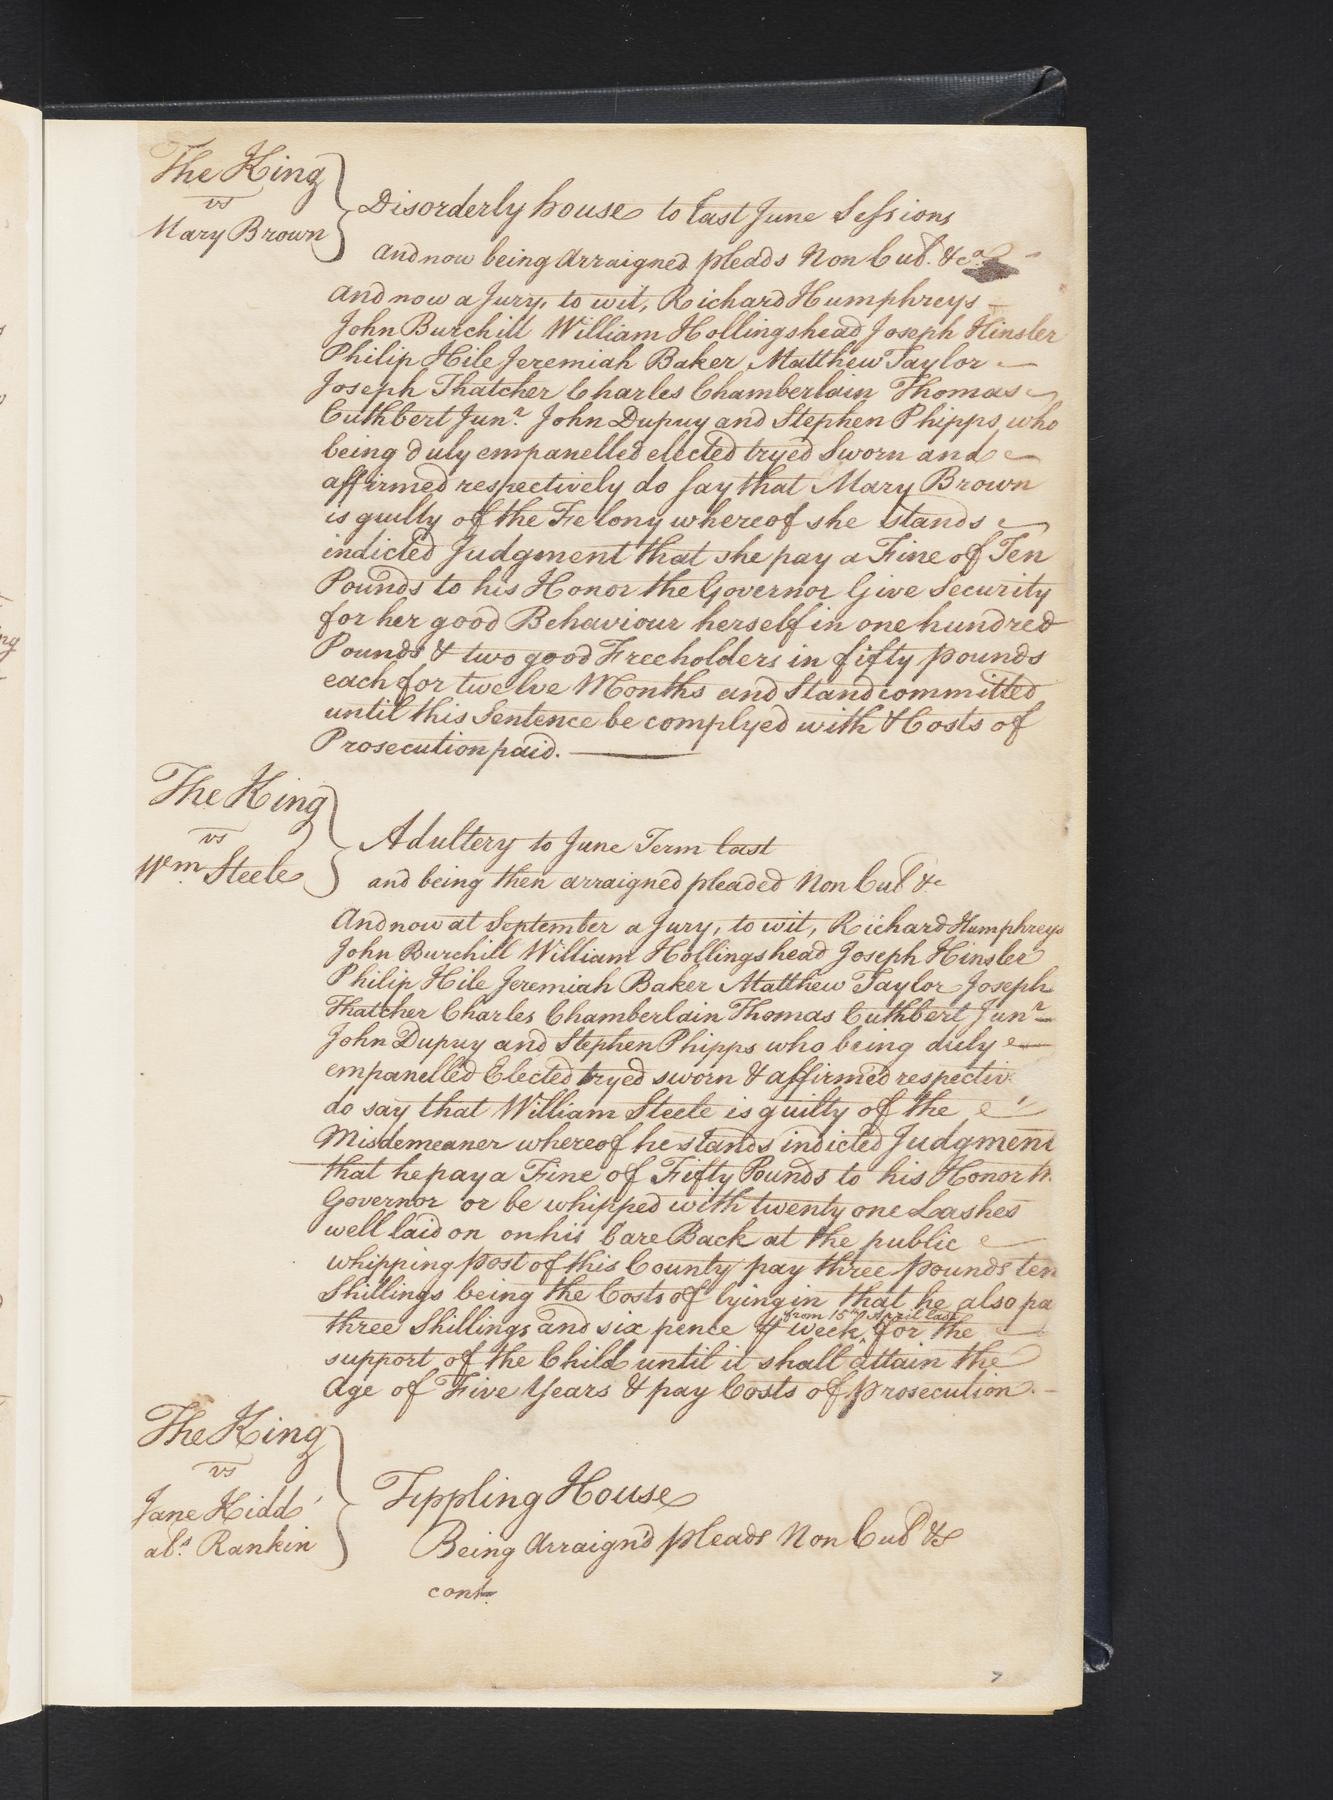 The King
vs
Mary Brown
Disorderly house to last June Sessions
and now being Arraigned pleads Non Cul. &ca
And now a Jury, to wit, Richard Humphreys
John Burchill William Hollingshead Joseph Hinsler
Philip Hile Jeremiah Baker Matthew Taylor
Joseph Thatcher Charles Chamberlain Thomas
Cuthbert Junr. John Dupuy and Stephen Phipps who
being duly empanelled elected tryed Sworn and
affirmed respectively do say that Mary Brown
is guilty of the Felony whereof she stands
indicted Judgment that she pay a Fine of Ten
Pounds to his Honor the Governor Give Security
for her good Behaviour herself in one hundred
Pounds & two good Freeholders in fifty pounds
each for twelve Months and Stand committed
until this Sentence be complyed with & Costs of
Prosecution paid.
The King
vs
Wm. Steele
Adultery to June Term last
and being then arraigned pleaded Non Cul &c
And now at September a Jury, to wit, Richard Humphreys
John Burchill William Hollingshead Joseph Hinsler
Philip Hile Jeremiah Baker Matthew Taylor Joseph
Thatcher Charles Chamberlain Thomas Cuthbert Junr
John Dupuy and Stephen Phipps who being duly
empanelled Elected tryed sworn & affirmed respectiv
do say that William Steele is guilty of the
Misdemeaner whereof he stands indicted Judgment
that he pay a Fine of Fifty Pounds to his Honor
Governor or be whipped with twenty one Lashes
well laid on on his bare Back at the public
whipping post of this County pay three pounds ten
Shillings being the Costs of lying in that he also pa
from 15th April last
three Shillings and six pence ⅌ week for the
support of the Child until it shall attain the
Age of Five Years & pay Costs of prosecution.
The King
vs
Jane Kidd
als. Rankin
Tippling House
Being Arraign'd pleads Non Cul &c
cont.
7